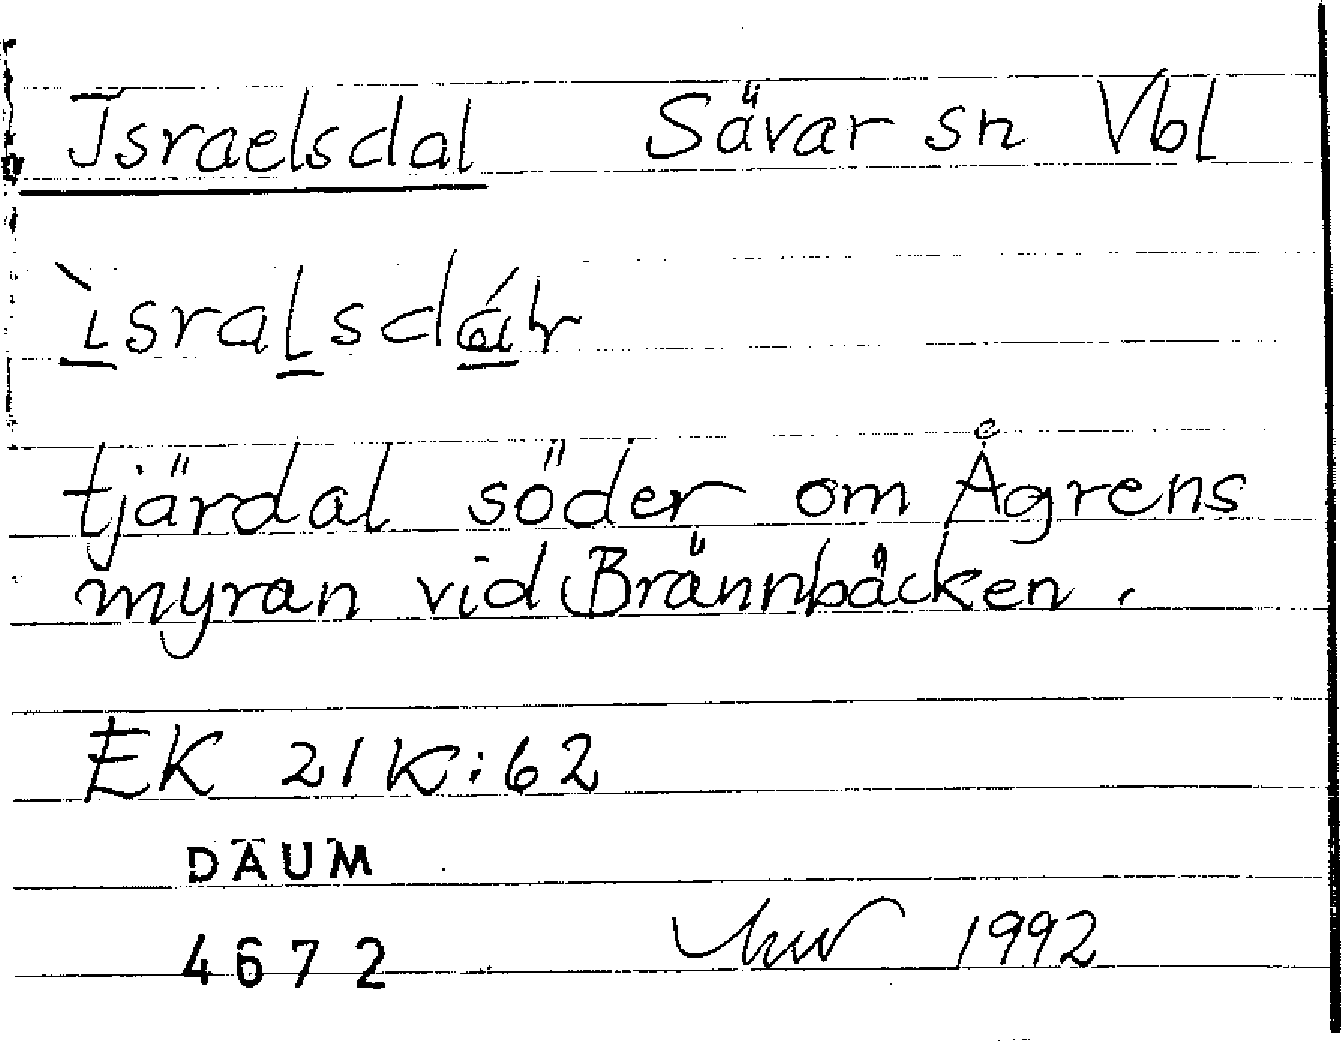 Israelsdal Sävar sn Vbl
tjärdal söder om Ågrens
myran vid Brännbäcken.
EK 21K:62
DAUM
4672 1992